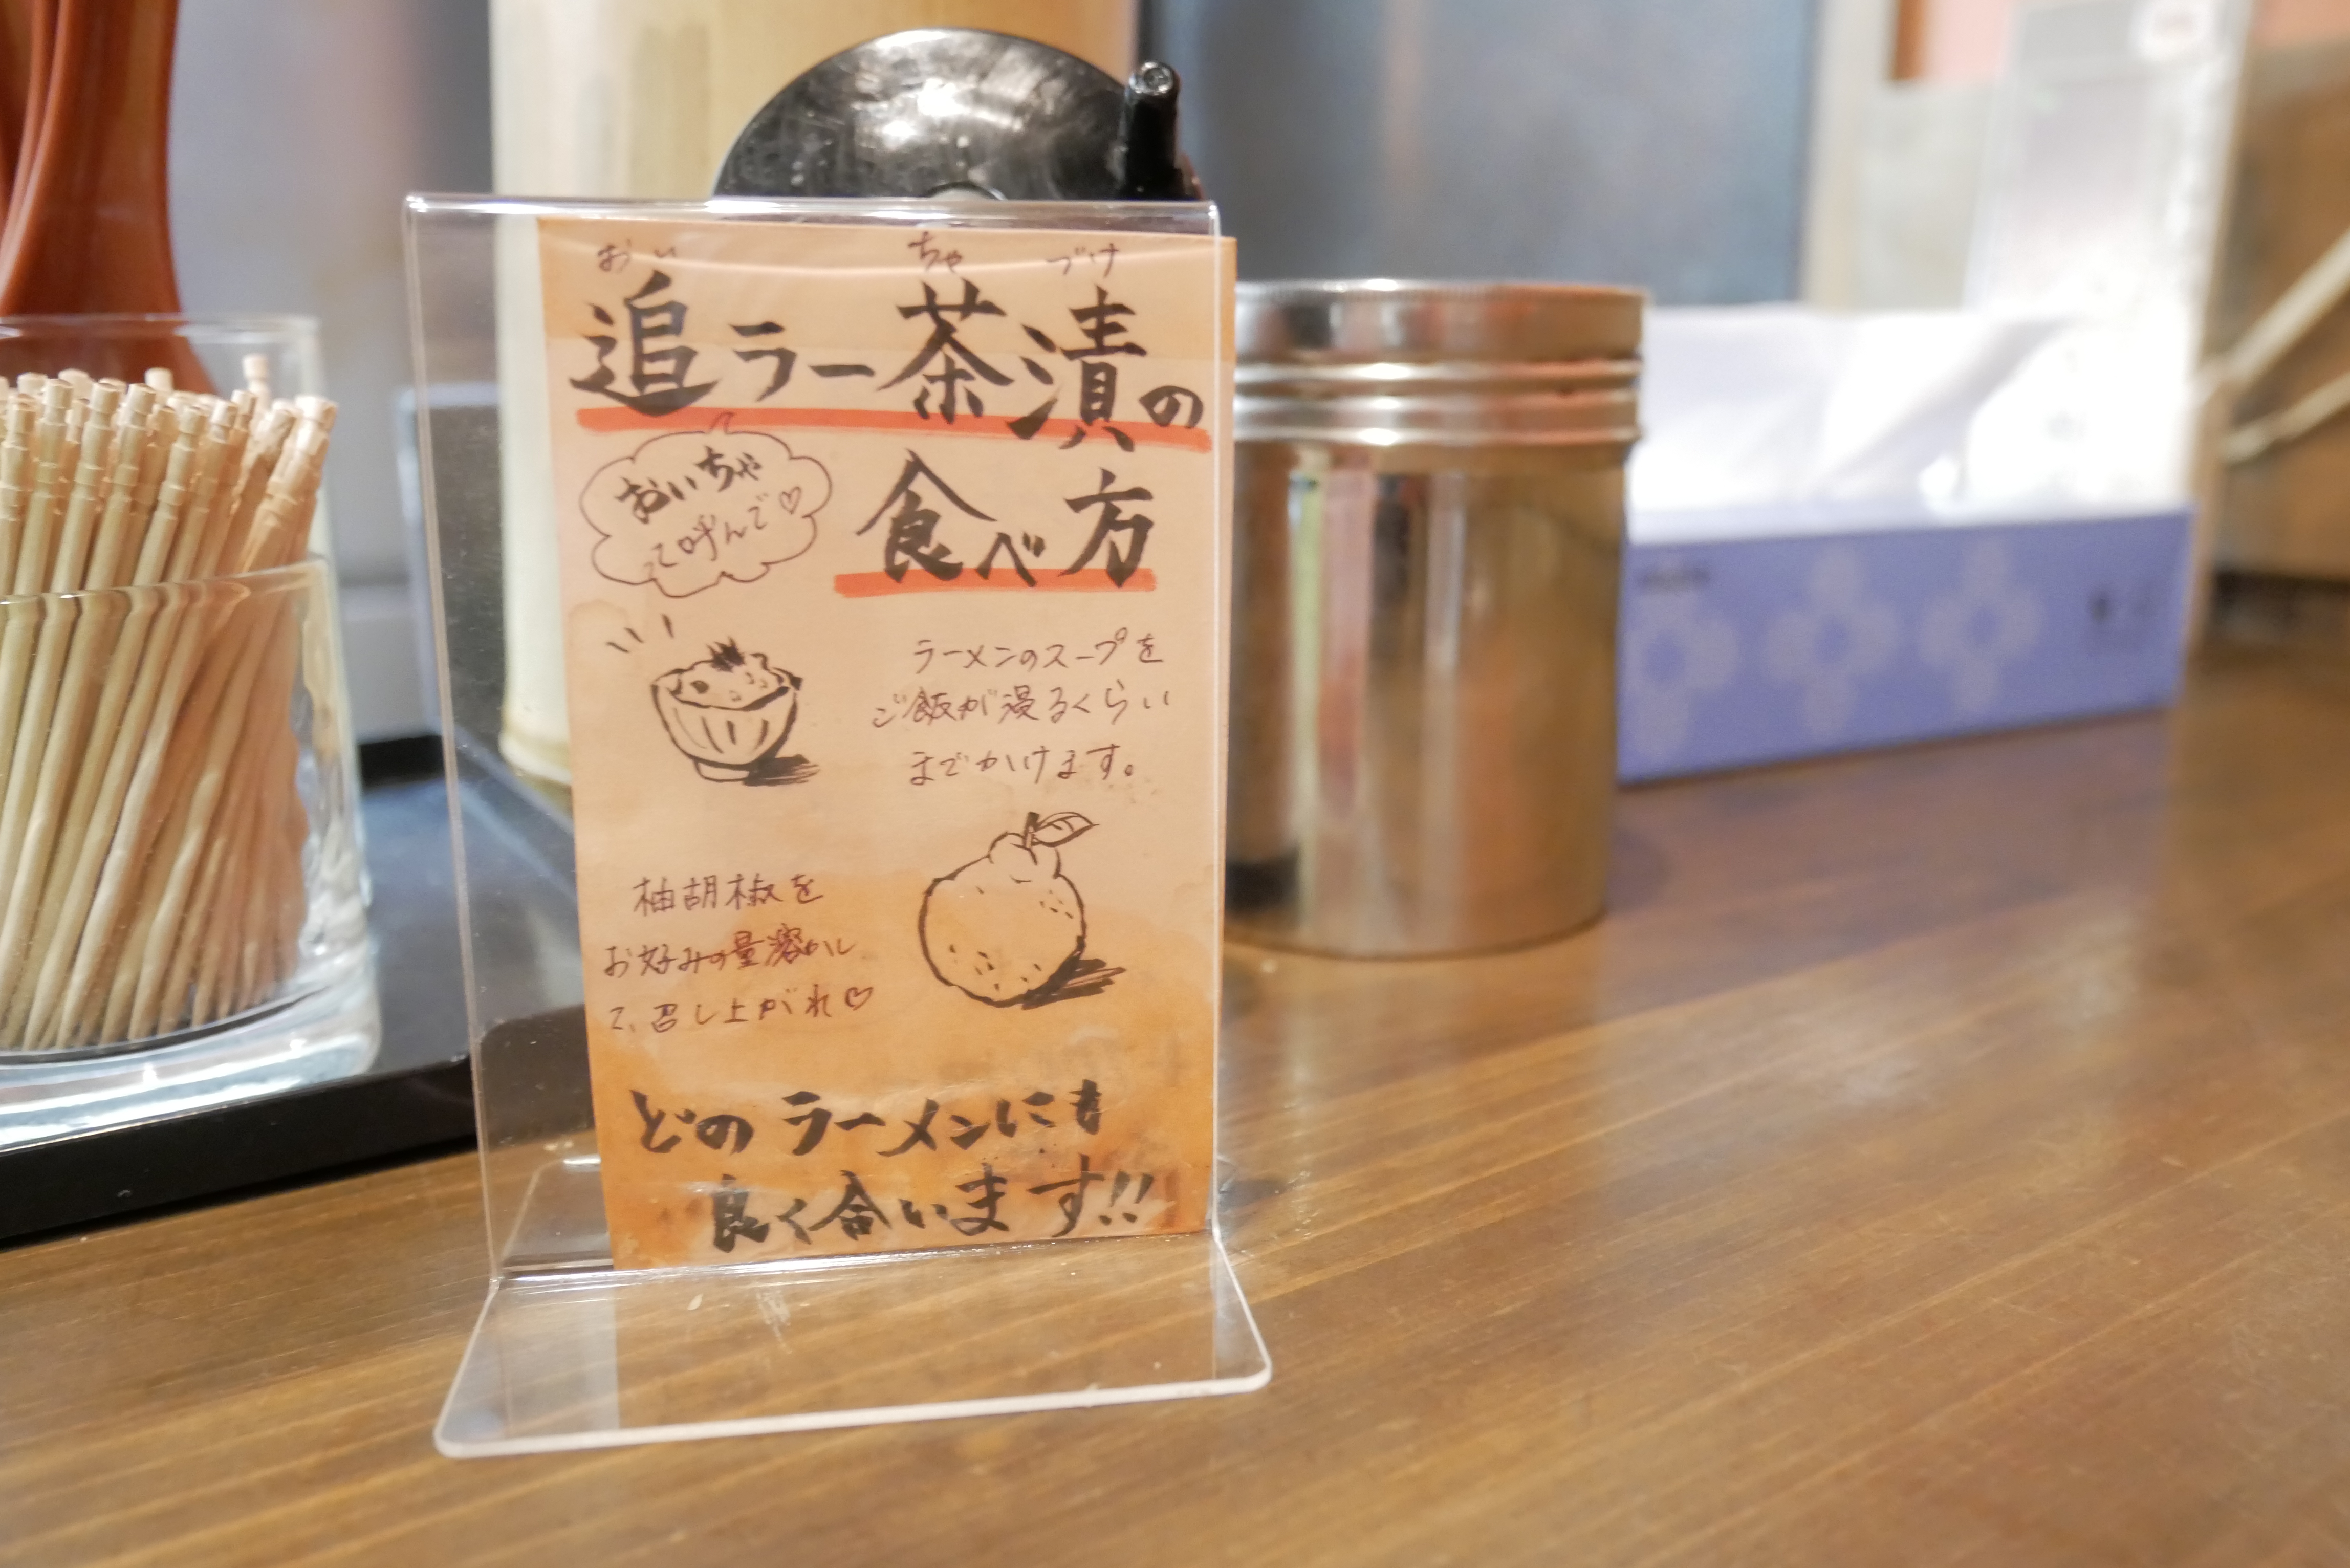 おい ちゃ づけ
追ラー茶漬の
食べ方
おいちゃ
って呼んで♡
ラーメンのスープを
ご飯が浸るくらい
までかけます。
柚胡椒を
お好みの量溶かし
て、召し上がれ♡
どのラーメンにも
良く合います!!